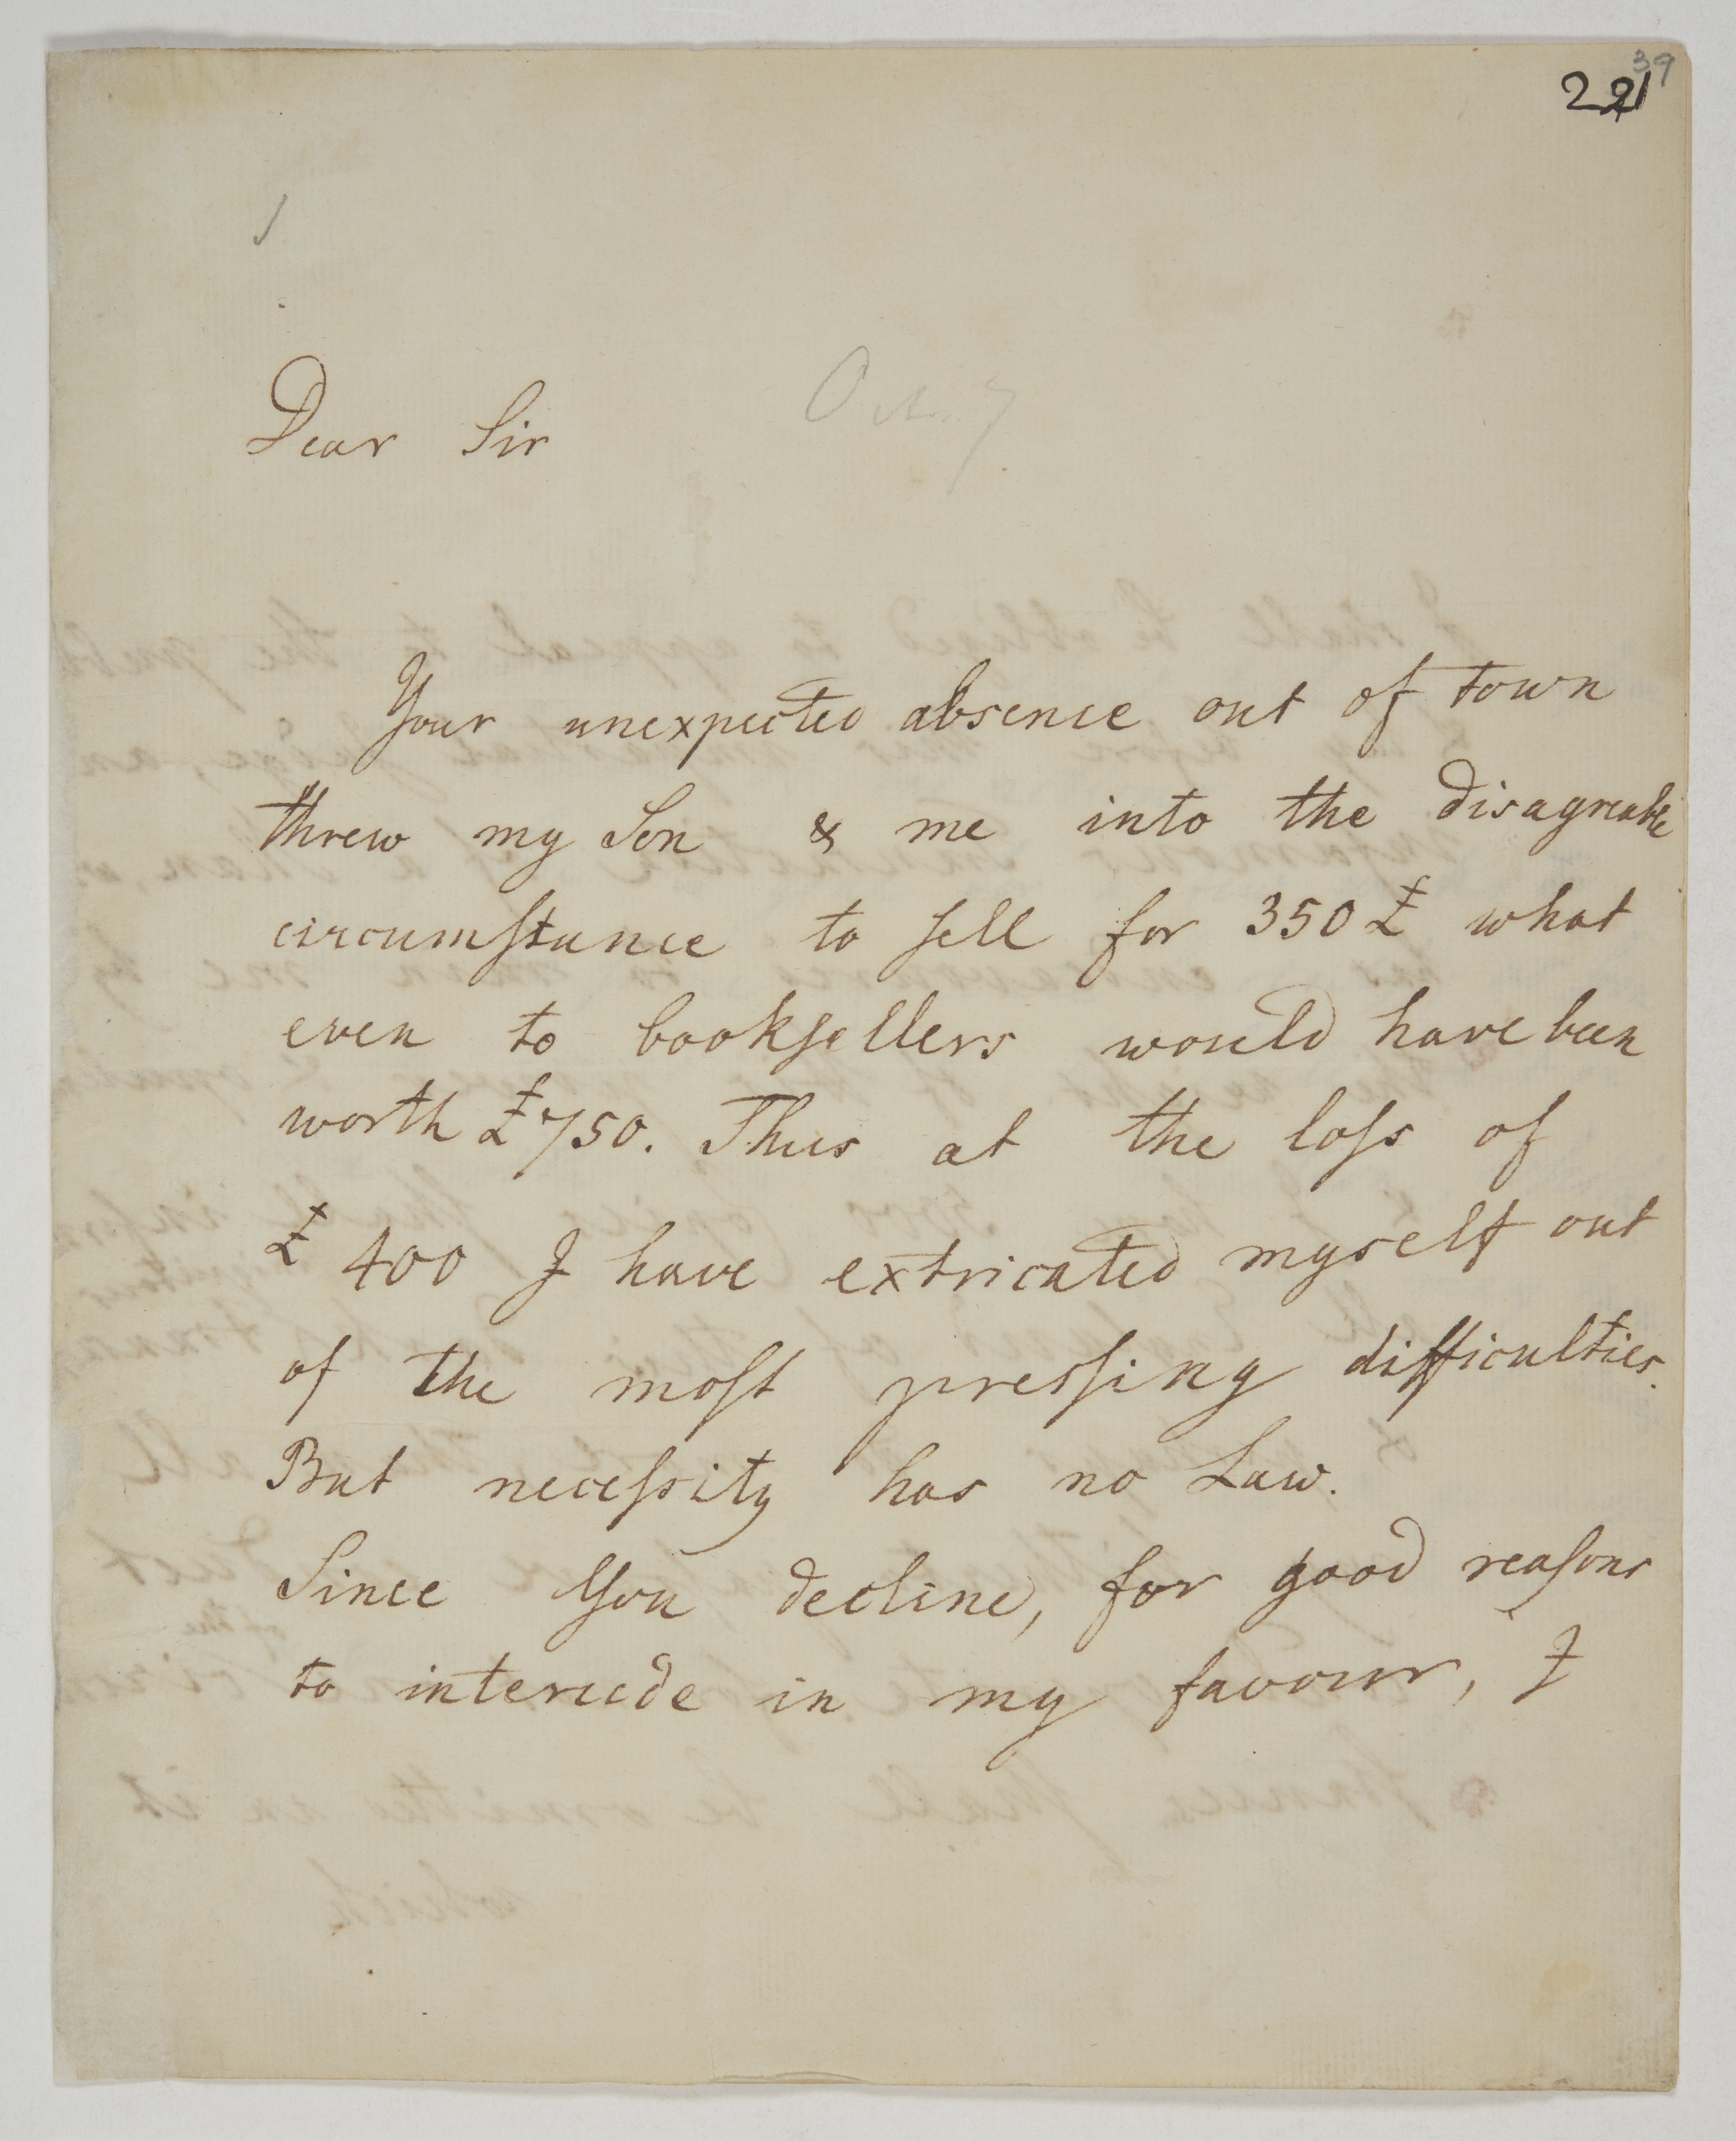 39
221
Oct. 7
Dear Sir
Your unexpected absence out of town
threw my Son & me into the disagreable
circumſtance to ſell for 350 £ what
even to bookſellers would have been
worth £750. Thus at the loſs of
£ 400 I have extricated myself out
of the moſt preſsing difficulties.
But neceſsity has no Law.
Since You decline, for good reaſons
to intercede in my favour, I